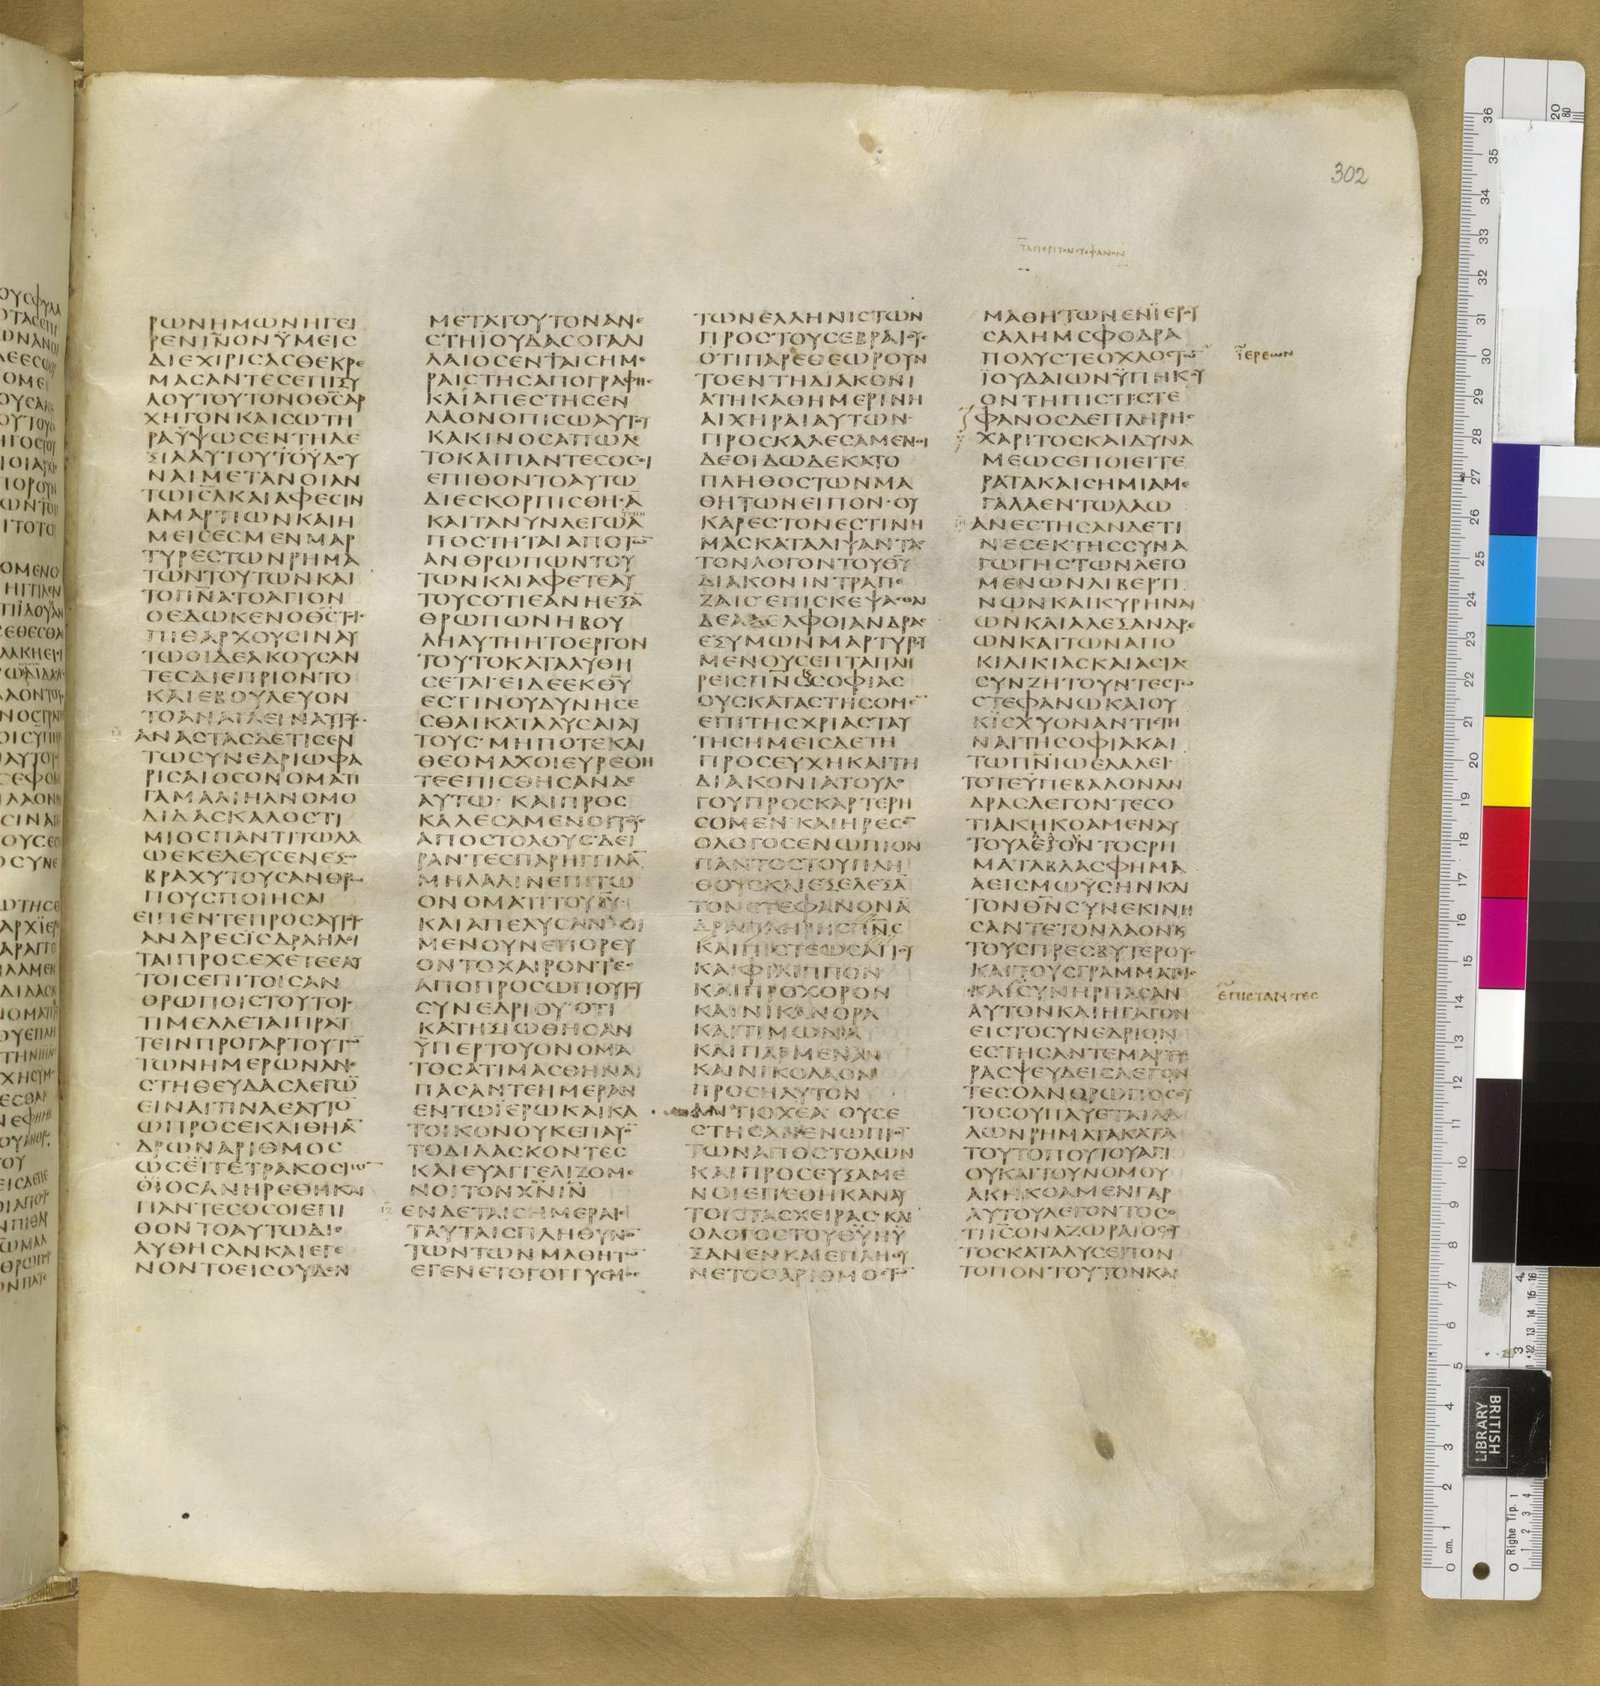 302
ΤΑ ΠΕΡΙ ΤΟΝ ΣΤΕΦΑΝΟΝ
ΡΩΝΗΜΩΝΗΓΕΙ
ΡΕΝΙΝΟΝΫΜΕΙΣ
ΔΙΕΧΙΡΙΣΑΣΘΕΚΡΕ
ΜΑΣΑΝΤΕΣΕΠΙΞΥ
ΛΟΥΤΟΥΤΟΝΟΘΣΑΡ
ΧΗΓΟΝΚΑΙΣΩΤΗ
ΡΑΫΨΩΣΕΝΤΗΔΕ
ΞΙΑΑΥΤΟΥΤΟΥΔΟΥ
ΝΑΙΜΕΤΑΝΟΙΑΝ
ΤΩΙΣΛΚΑΙΑΦΕΣΙΝ
ΑΜΑΡΤΙΩΝΚΑΙΗ
ΜΕΙΣΕΣΜΕΝΜΑΡ
ΤΥΡΕΣΤΩΝΡΗΜΑ
ΤΩΝΤΟΥΤΩΝΚΑΙ
ΤΟΠΝΑΤΟΑΓΙΟΝ
ΟΕΔΩΚΕΝΟΘΣΤΟΙΣ
ΠΙΘΑΡΧΟΥΣΙΝΑΥ
ΤΩΟΙΔΕΑΚΟΥΣΑΝ
ΤΕΣΔΙΕΠΡΙΟΝΤΟ
ΚΑΙΕΒΟΥΛΕΥΟΝ
ΤΟΑΝΑΙΛΕΙΝΑΥΤΟΥΣ
ΑΝΑΣΤΑΣΔΕΤΙΣΕΝ
ΤΩΣΥΝΕΔΡΙΩΦΑ
ΡΙΣΑΙΟΣΟΝΟΜΑΤΙ
ΓΑΜΑΛΙΗΛΝΟΜΟ
ΔΙΔΑΣΚΑΛΟΣΤΙ
ΜΙΟΣΠΑΝΤΙΤΩΛΑ
ΩΕΚΕΛΕΥΣΕΝΕΞΩ
ΒΡΑΧΥΤΟΥΣΑΝΘΡΩ
ΠΟΥΣΠΟΙΗΣΑΙ
ΕΙΠΕΝΤΕΠΡΟΣΑΥΤΟΥΣ
ΑΝΔΡΕΣΪΣΔΡΑΗΛΕΙ
ΤΑΙΠΡΟΣΕΧΕΤΕΕΑΥ
ΤΟΙΣΕΠΙΤΟΙΣΑΝ
ΘΡΩΠΟΙΣΤΟΥΤΟΙΣ
ΤΙΜΕΛΛΕΤΑΙΠΡΑΤ
ΤΕΙΝΠΡΟΓΑΡΤΟΥΤΩ
ΤΩΝΗΜΕΡΩΝΑΝΕ
ΣΤΗΘΕΥΔΑΣΛΕΓΩ
ΕΙΝΑΙΤΙΝΑΕΑΥΤΟ
ΩΠΡΟΣΕΚΛΙΘΗΑ
ΔΡΩΝΑΡΙΘΜΟΣ
ΩΣΕΪΤΕΤΡΑΚΟΣΙΩ
ΟΪΟΣΑΝΗΡΕΘΗΚΑΙ
ΠΑΝΤΕΣΟΣΟΙΕΠΙ
ΘΟΝΤΟΑΥΤΩΔΙΕ
ΛΥΘΗΣΑΝΚΑΙΕΓΕ
ΝΟΝΤΟΕΙΣΟΥΔΕΝ
ΜΕΤΑΤΟΥΤΟΝΑΝΕ
ΣΤΗΪΟΥΔΑΣΟΓΑΛΙ
ΛΑΙΟΣΕΝΤΑΙΣΗΜΕ
ΡΑΙΣΤΗΣΑΠΟΓΡΑΦΗΣ
ΚΑΙΑΠΕΣΤΗΣΕΝ
ΛΑΟΝΟΠΙΣΩΑΥΤΟΥ
ΚΑΚΙΝΟΣΑΠΩΛΕ
ΤΟΚΑΙΠΑΝΤΕΣΟΣΟΙ
ΕΠΙΘΟΝΤΟΑΥΤΩ
ΔΙΕΣΚΟΡΠΙΣΘΗΣΑ
ΚΑΙΤΑΝΥΝΛΕΓΩΑ
ΠΟΣΤΗΤΑΙΑΠΟΤΩ
ΑΝΘΡΩΠΩΝΤΟΥ
ΤΩΝΚΑΙΑΦΕΤΕΑΥ
ΤΟΥΣΟΤΙΕΑΝΗΕΞΑ
ΘΡΩΠΩΝΗΒΟΥ
ΛΗΑΥΤΗΗΤΟΕΡΓΟΝ
ΤΟΥΤΟΚΑΤΑΛΥΘΗ
ΣΕΤΑΙΕΙΔΕΕΚΘΥ
ΕΣΤΙΝΟΥΔΥΝΗΣΕ
ΣΘΑΙΚΑΤΑΛΥΣΑΙΑΥ
ΤΟΥΣΜΗΠΟΤΕΚΑΙ
ΘΕΟΜΑΧΟΙΕΥΡΕΘΗ
ΤΕΕΠΙΣΘΗΣΑΝΔΕ
ΑΥΤΩΚΑΙΠΡΟΣ
ΚΑΛΕΣΑΜΕΝΟΙΤΟΥΣ
ΑΠΟΣΤΟΛΟΥΣΔΕΙ
ΡΑΝΤΕΣΠΑΡΗΓΓΙΛΑ
ΜΗΛΑΛΙΝΕΠΙΤΩ
ΟΝΟΜΑΤΙΤΟΥΙΥ
ΚΑΙΑΠΕΛΥΣΑΝΟΙ
ΜΕΝΟΥΝΕΠΟΡΕΥ
ΟΝΤΟΧΑΙΡΟΝΤΕΣ
ΑΠΟΠΡΟΣΩΠΟΥΤΟΥ
ΣΥΝΕΔΡΙΟΥΟΤΙ
ΚΑΤΗΞΙΩΘΗΣΑΝ
ΫΠΕΡΤΟΥΟΝΟΜΑ
ΤΟΣΑΤΙΜΑΣΘΗΝΑΙ
ΠΑΣΑΝΤΕΗΜΕΡΑΝ
ΕΝΤΩΪΕΡΩΚΑΙΚΑ
ΤΟΙΚΟΝΟΥΚΕΠΑΥ
ΤΟΔΙΔΑΣΚΟΝΤΕΣ
ΚΑΙΕΥΑΓΓΕΛΙΖΟΜΕ
ΝΟΙΤΟΝΧΝΙΝ
ΕΝΔΕΤΑΙΣΗΜΕΡΑΙΣ
ΤΑΥΤΑΙΣΠΛΗΘΥΝΟ
ΤΩΝΤΩΝΜΑΘΗΤΩ
ΕΓΕΝΕΤΟΓΟΓΓΥΣΜΟΣ
ΤΩΝΕΛΛΗΝΙΣΤΩΝ
ΠΡΟΣΤΟΥΣΕΒΡΑΙΟΥΣ
ΟΤΙΠΑΡΕΘΕΩΡΟΥΝ
ΤΟΕΝΤΗΔΙΑΚΟΝΙ
ΑΤΗΚΑΘΗΜΕΡΙΝΗ
ΑΙΧΗΡΑΙΑΥΤΩΝ
ΠΡΟΣΚΑΛΕΣΑΜΕΝΟΙ
ΔΕΟΙΔΩΔΕΚΑΤΟ
ΠΛΗΘΟΣΤΩΝΜΑ
ΘΗΤΩΝΕΙΠΟΝΟΥ
ΚΑΡΕΣΤΟΝΕΣΤΙΝΗ
ΜΑΣΚΑΤΑΛΙΨΑΝΤΑΣ
ΤΟΝΛΟΓΟΝΤΟΥΘΥ
ΔΙΑΚΟΝΙΝΤΡΑΠΕ
ΖΑΙΣΕΠΙΣΚΕΨΑΣΘΑΙ
ΔΕΑΔΕΛΦΟΙΑΝΔΡΑΣ
ΕΞΥΜΩΝΜΑΡΤΥΡΟΥ
ΜΕΝΟΥΣΕΠΤΑΠΛΗ
ΡΕΙΣΠΝΣΣΟΦΙΑΣ
ΟΥΣΚΑΤΑΣΤΗΣΟΜΕΝ
ΕΠΙΤΗΣΧΡΙΑΣΤΑΥ
ΤΗΣΗΜΕΙΣΔΕΤΗ
ΠΡΟΣΕΥΧΗΚΑΙΤΗ
ΔΙΑΚΟΝΙΑΤΟΥΛΟ
ΓΟΥΠΡΟΣΚΑΡΤΕΡΗ
ΣΟΜΕΝΚΑΙΗΡΕΣΕ
ΟΛΟΓΟΣΕΝΩΠΙΟΝ
ΠΑΝΤΟΣΤΟΥΠΛΗ
ΘΟΥΣΚΑΙΕΞΕΛΕΞΑ
ΤΟΝΣΤΕΦΑΝΟΝΑ
ΔΡΑΠΛΗΡΗΣΠΝΣ
ΚΑΙΠΙΣΤΕΩΣΑΓΙΟΥ
ΚΑΙΦΙΛΙΠΠΟΝ
ΚΑΙΠΡΟΧΟΡΟΝ
ΚΑΙΝΙΚΑΝΟΡΑ
ΚΑΙΤΙΜΩΝΑ
ΚΑΙΠΑΡΜΕΝΑΝ
ΚΑΙΝΙΚΟΛΑΟΝ
ΠΡΟΣΗΛΥΤΟΝ
ΑΝΤΙΟΧΕΑΟΥΣΕ
ΣΤΗΣΑΝΕΝΩΠΙΟ
ΤΩΝΑΠΟΣΤΟΛΩΝ
ΚΑΙΠΡΟΣΕΥΞΑΜΕ
ΝΟΙΕΠΕΘΗΚΑΝΑΥ
ΤΟΙΣΤΑΣΧΕΙΡΑΣΚΑΙ
ΟΛΟΓΟΣΤΟΥΘΥΗΥ
ΞΑΝΕΝΚΑΙΕΠΛΗΘΥ
ΝΕΤΟΟΑΡΙΘΜΟΣΤΩ
ΜΑΘΗΤΩΝΕΝΪΕΡΟΥ
ΣΑΛΗΜΣΦΟΔΡΑ
ΠΟΛΥΣΤΕΟΧΛΟΣΤΩ
ΪΕΡΕΩΝ
ΪΟΥΔΑΙΩΝΫΠΗΚΟΥ
ΟΝΤΗΠΙΣΤΙΣΤΕ
ΦΑΝΟΣΔΕΠΛΗΡΗΣ
ΧΑΡΙΤΟΣΚΑΙΔΥΝΑ
ΜΕΩΣΕΠΟΙΕΙΤΕ
ΡΑΤΑΚΑΙΣΗΜΙΑΜΕ
ΓΑΛΑΕΝΤΩΛΑΩ
ΑΝΕΣΤΗΣΑΝΔΕΤΙ
ΝΕΣΕΚΤΗΣΣΥΝΑ
ΓΩΓΗΣΤΩΝΛΕΓΟ
ΜΕΝΩΝΛΙΒΕΡΤΙ
ΝΩΝΚΑΙΚΥΡΗΝΑΙ
ΩΝΚΑΙΑΛΕΞΑΝΔΡΕ
ΩΝΚΑΙΤΩΝΑΠΟ
ΚΙΛΙΚΙΑΣΚΑΙΑΣΙΑΣ
ΣΥΝΖΗΤΟΥΝΤΕΣΤΩ
ΣΤΕΦΑΝΩΚΑΙΟΥ
ΚΙΣΧΥΟΝΑΝΤΙΣΤΗ
ΝΑΙΤΗΣΟΦΙΑΚΑΙ
ΤΩΠΝΙΩΕΛΑΛΕΙ
ΤΟΤΕΫΠΕΒΑΛΟΝΑΝ
ΔΡΑΣΛΕΓΟΝΤΕΣΟ
ΤΙΑΚΗΚΟΑΜΕΝΑΥ
ΤΟΥΛΕΓΟΝΤΟΣΡΗ
ΜΑΤΑΒΛΑΣΦΗΜΑ
ΑΕΙΣΜΩΫΣΗΝΚΑΙ
ΤΟΝΘΝΣΥΝΕΚΙΝΗ
ΣΑΝΤΕΤΟΝΛΑΟΝΚΑΙ
ΤΟΥΣΠΡΕΣΒΥΤΕΡΟΥΣ
ΚΑΙΤΟΥΣΓΡΑΜΜΑΤΕΙΣ
ΚΑΙΣΥΝΗΡΠΑΣΑΝ
ΕΠΙΣΤΑΝΤΕΣ
ΑΥΤΟΝΚΑΙΗΓΑΓΟΝ
ΕΙΣΤΟΣΥΝΕΔΡΙΟΝ
ΕΣΤΗΣΑΝΤΕΜΑΡΤΥ
ΡΑΣΨΕΥΔΕΙΣΛΕΓΟΝ
ΤΕΣΟΑΝΘΡΩΠΟΣΟΥ
ΤΟΣΟΥΠΑΥΕΤΑΙΛΑ
ΛΩΝΡΗΜΑΤΑΚΑΤΑ
ΤΟΥΤΟΠΟΥΤΟΥΑΓΙ
ΟΥΚΑΙΤΟΥΝΟΜΟΥ
ΑΚΗΚΟΑΜΕΝΓΑΡ
ΑΥΤΟΥΛΕΓΟΝΤΟΣΟ
ΤΙΙΣΟΝΑΖΩΡΑΙΟΣΟΥ
ΤΟΣΚΑΤΑΛΥΣΕΙΤΟΝ
ΤΟΠΟΝΤΟΥΤΟΝΚΑΙ